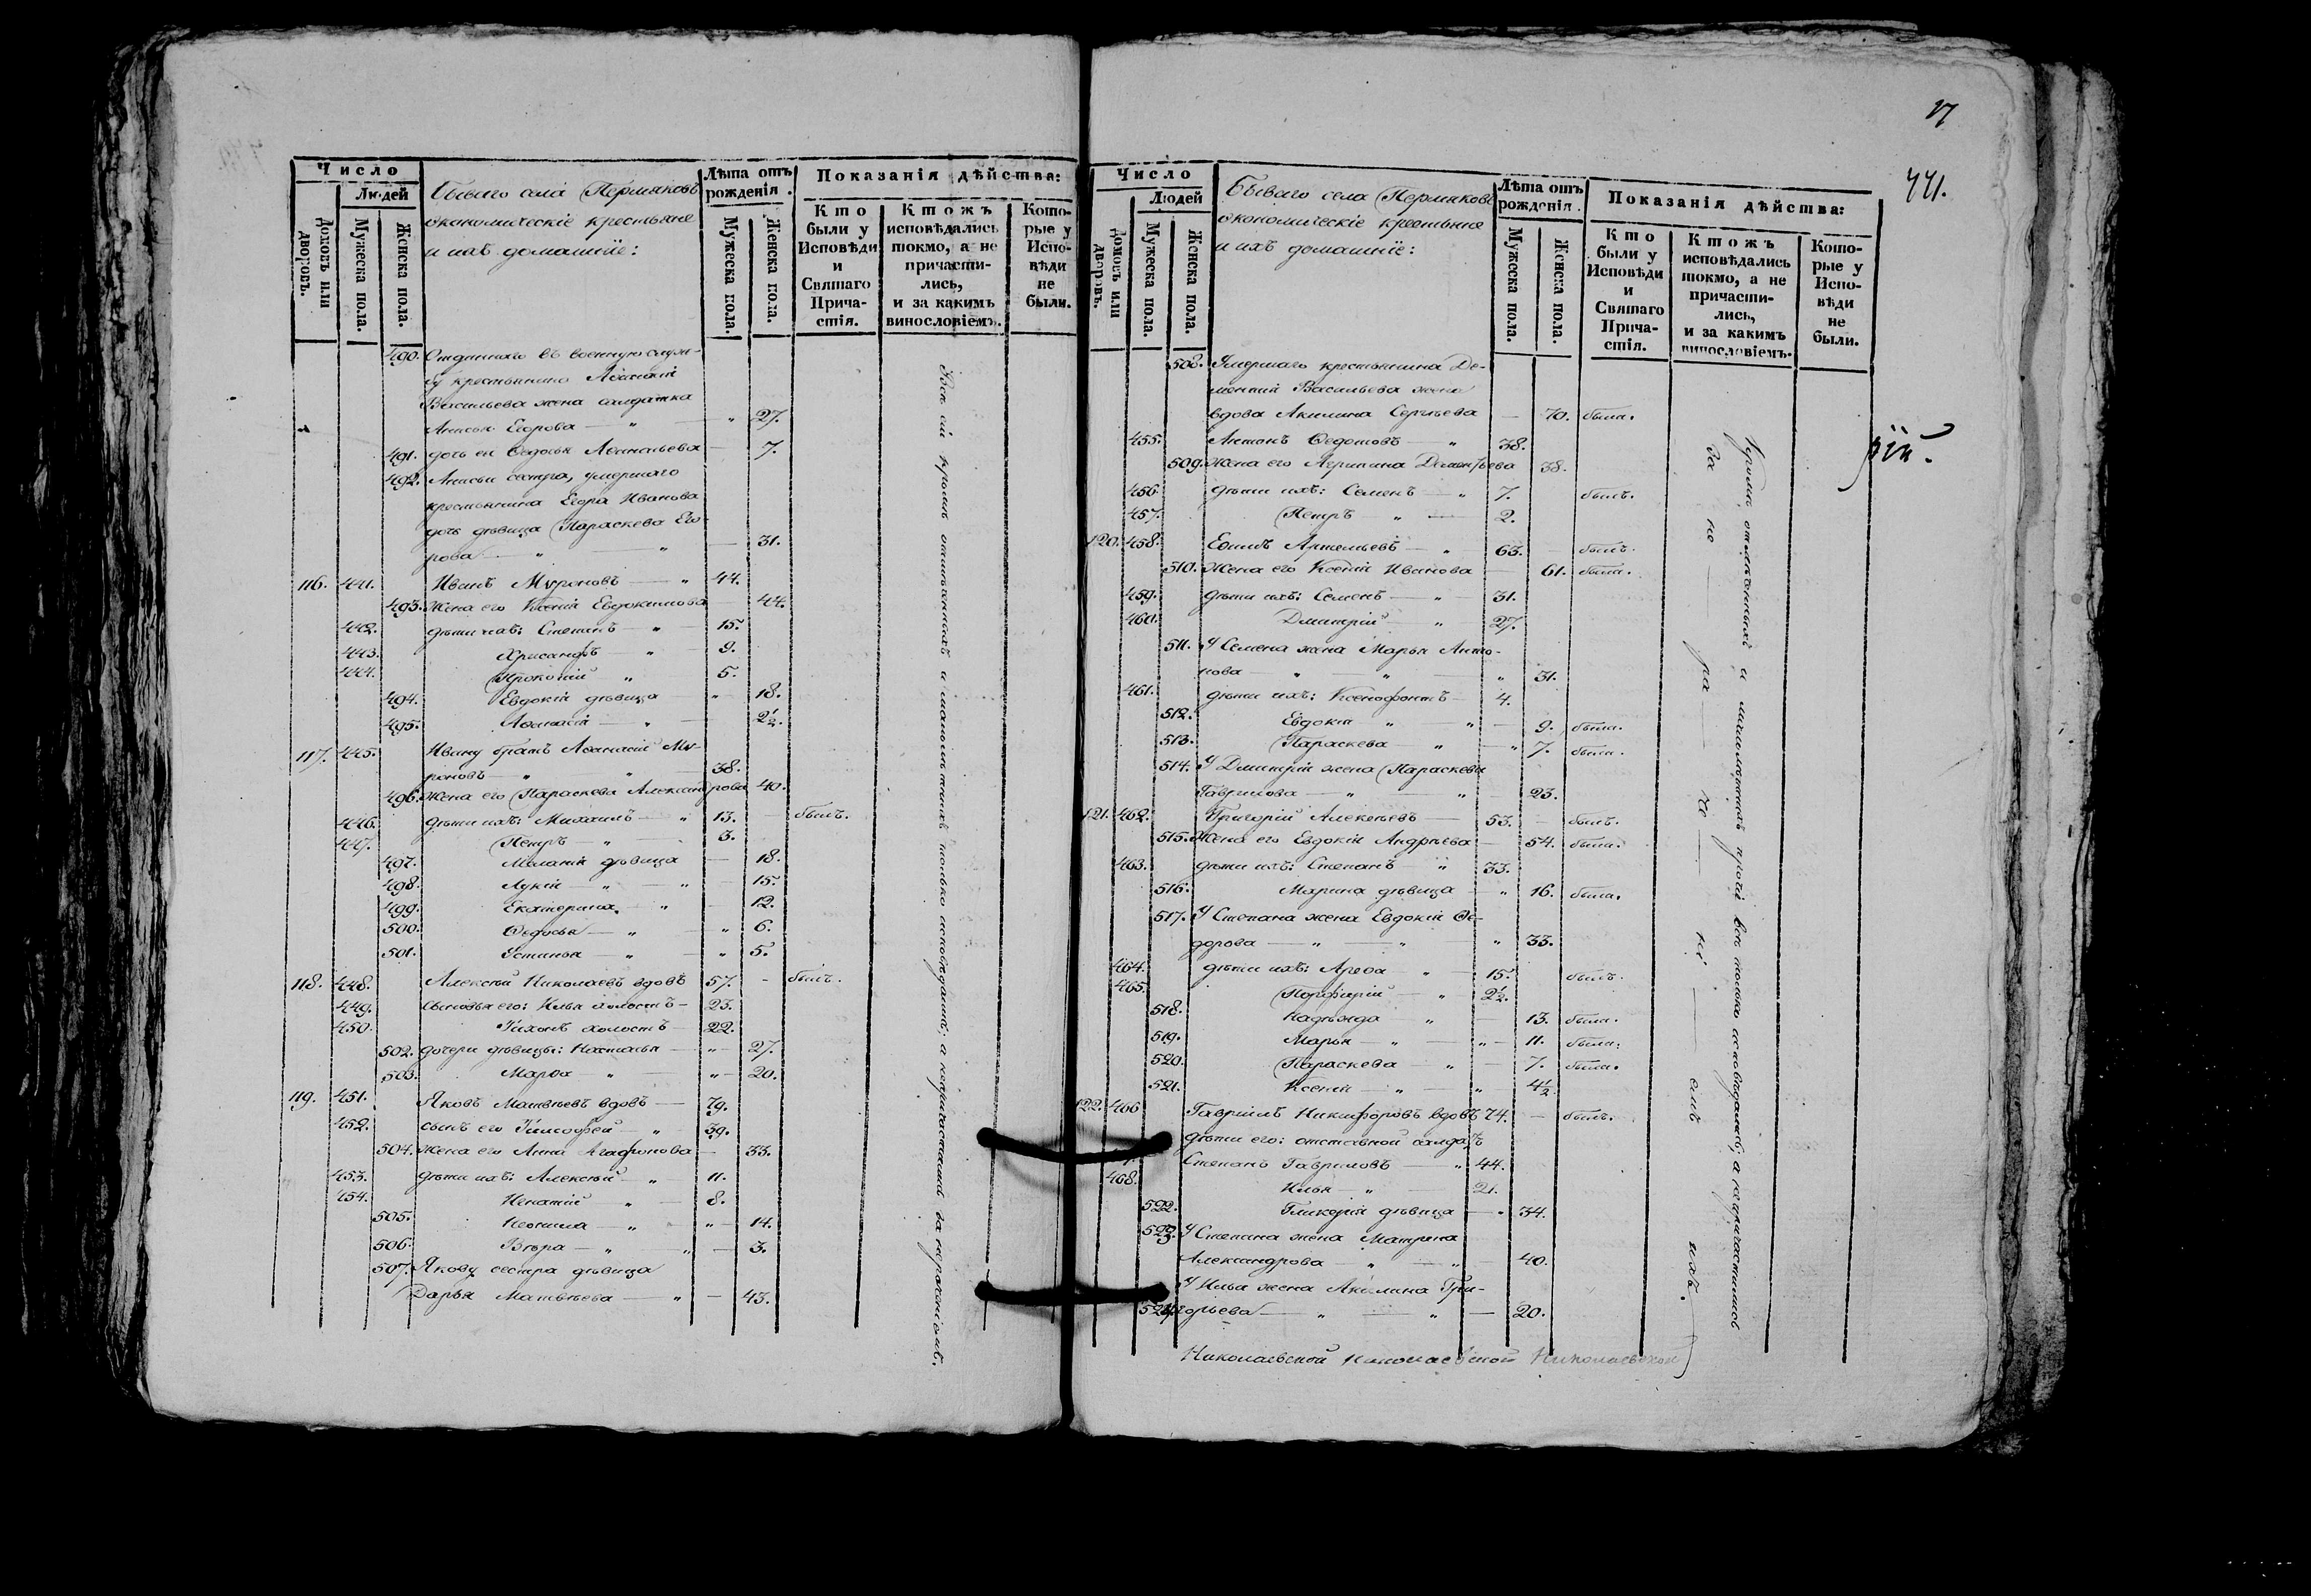 Число
Людей
домовъ или дворовъ.
Мужеска пола.
Женска пола.
Бывшаго села Пермяковъ
економическіе крестьяне
и ихъ домашніе:
Лѣта отъ рожденія.
Мужеска пола.
Женска пола.
Показанія дѣйства:
Кто были у Исповѣди и Святаго Причастія.
Ктожъ исповѣдались токмо, а не причастились, и за какимъ винословіемъ.
Которые у Исповѣди не были.
490. Отданнаго въ военную служ-
бу крестьянина
Васильева жена солдатка
Анисья Егорова — " 27.
491. дочь ея Ѳедосья — 7.
492. Анисьи сестра, умершаго
крестьянина Егора Иванова
дочь дѣвица Параскева Его-
рова — " — " — 31.
116. 441. Иванъ Муроновъ — " 44.
493. Жена его Ксенія Евдокимова — 44.
442. дѣти ихъ: Степанъ — " — 15.
443. Хрисанѳъ — " — 9.
444. Прокопій " 5.
494. Евдокія дѣвица — " — 18.
495. — " — 2½.
117. 445. Ивану братъ Аѳанасій Му-
роновъ — " " — 38.
496. Жена его Параскева Александрова 40.
446. дѣти ихъ: Михаилъ — " 13. — былъ.
447. Петръ — " 3.
497. Меланія дѣвица — 18.
498. Лукія — " — " — 15.
499. Екатерина — " — 12.
500. Ѳедосья — " — " 6.
501. Устинья — " — " 5.
118. 448. Алексѣй Николаевъ вдовъ 57. - былъ.
449. сыновья его: Илья холостъ — 23.
450. Тихонъ холостъ — 22.
502. дочери дѣвицы: Наталья — " — 27.
503. Марѳа — " — " — 20.
119. 451. Яковъ Матвѣевъ вдовъ — 79.
452. сынъ его Тимоѳей — " — 39.
504. Жена его Анна Агафонова — 33.
453. дѣти ихъ: Алексѣй — " — 11.
454. Игнатій " — 8.
505. Неонила — " — " — 14.
506. Вѣра — " " — 3.
507. Якову сестра дѣвица
Дарья Матвѣева — " — 43.
Всѣ сіи кромѣ отмѣченныхъ и малолѣтныхъ только исповѣдались, а не
17
441.
Число
Людей
домовъ или дворовъ.
Мужеска пола.
Женска пола.
Бывшаго села Пермяковъ
економическіе крестьяне
и ихъ домашніе:
Лѣта отъ рожденія.
Мужеска пола.
Женска пола.
Показанія дѣйства:
Кто были у Исповѣди и Святаго Причастія.
Ктожъ исповѣдались токмо, а не причастились, и за какимъ винословіемъ.
Которые у Исповѣди не были.
508. Умершаго крестьянина Де-
ментія Васильева жена
вдова Акилина Сергѣева — 70. была.
455. Антонъ Ѳедотовъ — " 38.
509. Жена его Агрипина Дементьева 38.
456. дѣти ихъ: Семенъ — " 7. былъ.
457. Петръ " — 2.
120. 458. Ефимъ Артемьевъ — " 63. — былъ.
510. Жена его Ксенія Иванова — 61. была.
459. дѣти ихъ: Семенъ — " — 31.
460. Димитрій — " 27.
511. У Семена жена Марья Анто-
нова " — " — " 31.
461. дѣти ихъ: Ксенофонтъ — 4.
512. Евдокія " — " — 9. была.
513. Параскева — " — " 7. была.
514. У Димитрія жена Параскева
Гаврилова — " — " — 23.
121. 462. Григорій Алексѣевъ — 53. — былъ.
515. Жена его Евдокія Андрѣева — 54. была.
463. дѣти ихъ: Степанъ " 33.
516. Марина дѣвица — " 16. была.
517. У Степана жена Евдокія Ѳе-
дорова — " — " — " 33.
464. дѣти ихъ: Ареѳа " — 15. былъ.
465. Порфирій — " — 2½.
518. Надежда " — 13. была.
519. Марья — " — " — 11. была.
520. Параскева — " — 7. была.
521. Ксенія — " — " 4½
122. 466 Гавріилъ Никифоровъ вдовъ 74. — былъ.
дѣти его: отставной солдатъ
Степанъ Гавриловъ — " 44.
468. Илья — " — 21.
522. Гликерія дѣвица — " 34.
523. У Степана жена Матрина
Александрова — " — " — 40.
У Ильи жена Акилина Гри-
524. горьева — " — " — 20.
Кромѣ отмѣченныхъ и малолѣтнихъ прочіи всѣ только исповѣдались, а не причастились
за не — ра — че — ні — емъ ихъ.
Николаевской Николаевской Николаевской